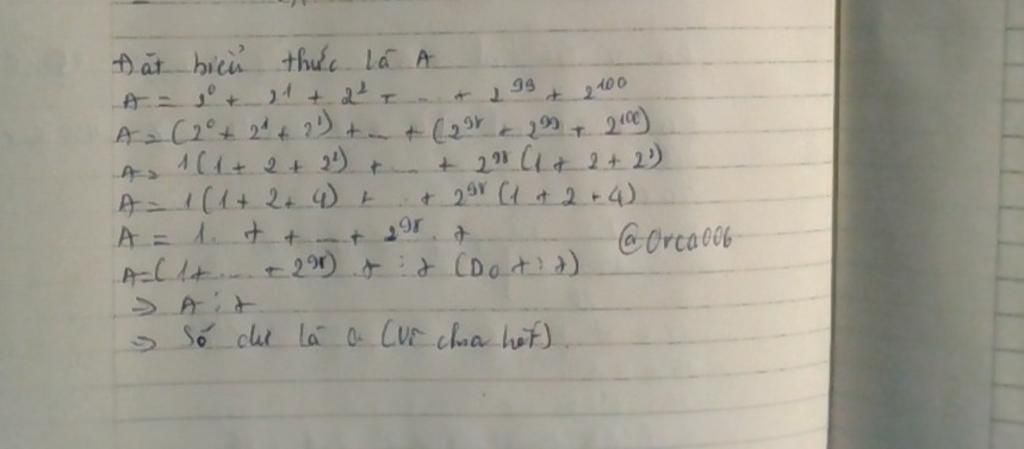 Đặt biểu thức là A
A = 2⁰ + 2¹ + 2² + ... + 2⁹⁹ + 2¹⁰⁰
A = (2⁰ + 2¹ + 2²) + ... + (2⁹⁸ + 2⁹⁹ + 2¹⁰⁰)
A = 1(1 + 2 + 2²) + ... + 2⁹⁸(1 + 2 + 2²)
A = 1(1 + 2 + 4) + ... + 2⁹⁸(1 + 2 + 4)
A = 1. 7 + ... + 2⁹⁸. 7
@Orca006
A = (1 + ... + 2⁹⁸) 7 ⋮ 7 (Do 7 ⋮ 7)
⇒ A ⋮ 7
⇒ Số dư là 0 (Vì chia hết).